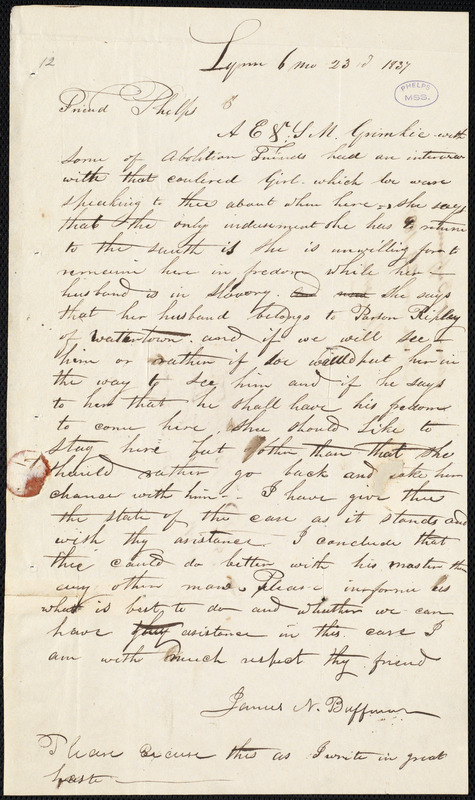 12
Lynn 6 mo 23d 1837
PHELPS
MSS.
Friend Phelps
A E & S. M. Grimkie with
some of abolition Friends had an interview
with that coulered Girl which we ware
speaking to thee about when here, & she says
that the only indusement she has to return
to the south is she is unwilling for to
remain here in fredom while her
husband is in slavery she says
that her husband belongs to Parson Ripley
of Watertown and if we will see
him or rather if we would put her in
the way to see him and if he says
to her that he shall have his fredom
to come here. She should Like to
stay here but other than that she
should rather go back and take her
chance with him - I have give thee
the state of the case as it stands and
wish thy asistance I conclude that
thee could do better with his master than
any other man. Please informe us
what is best to do and whether we can
have thy asistance in this case I
am with much respect thy friend
James N. Buffum
Please excuse this as I write in great
haste